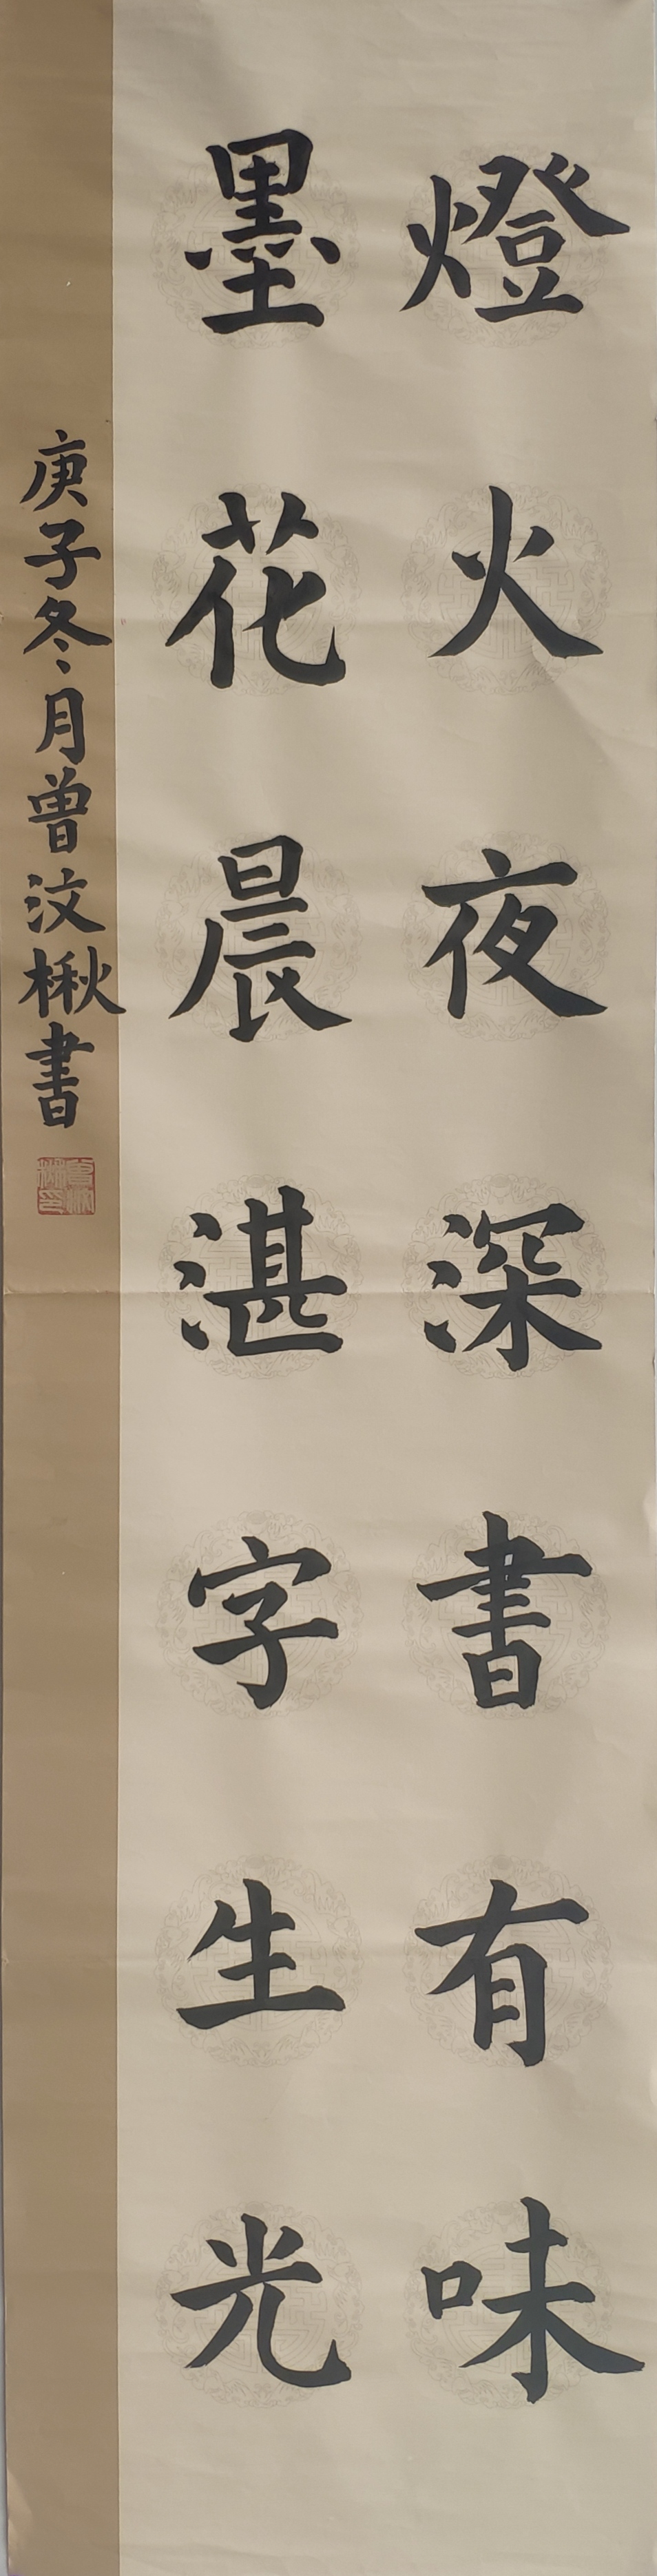 燈火夜深書有味
墨花晨湛字生光
庚子冬月曾汶楸書